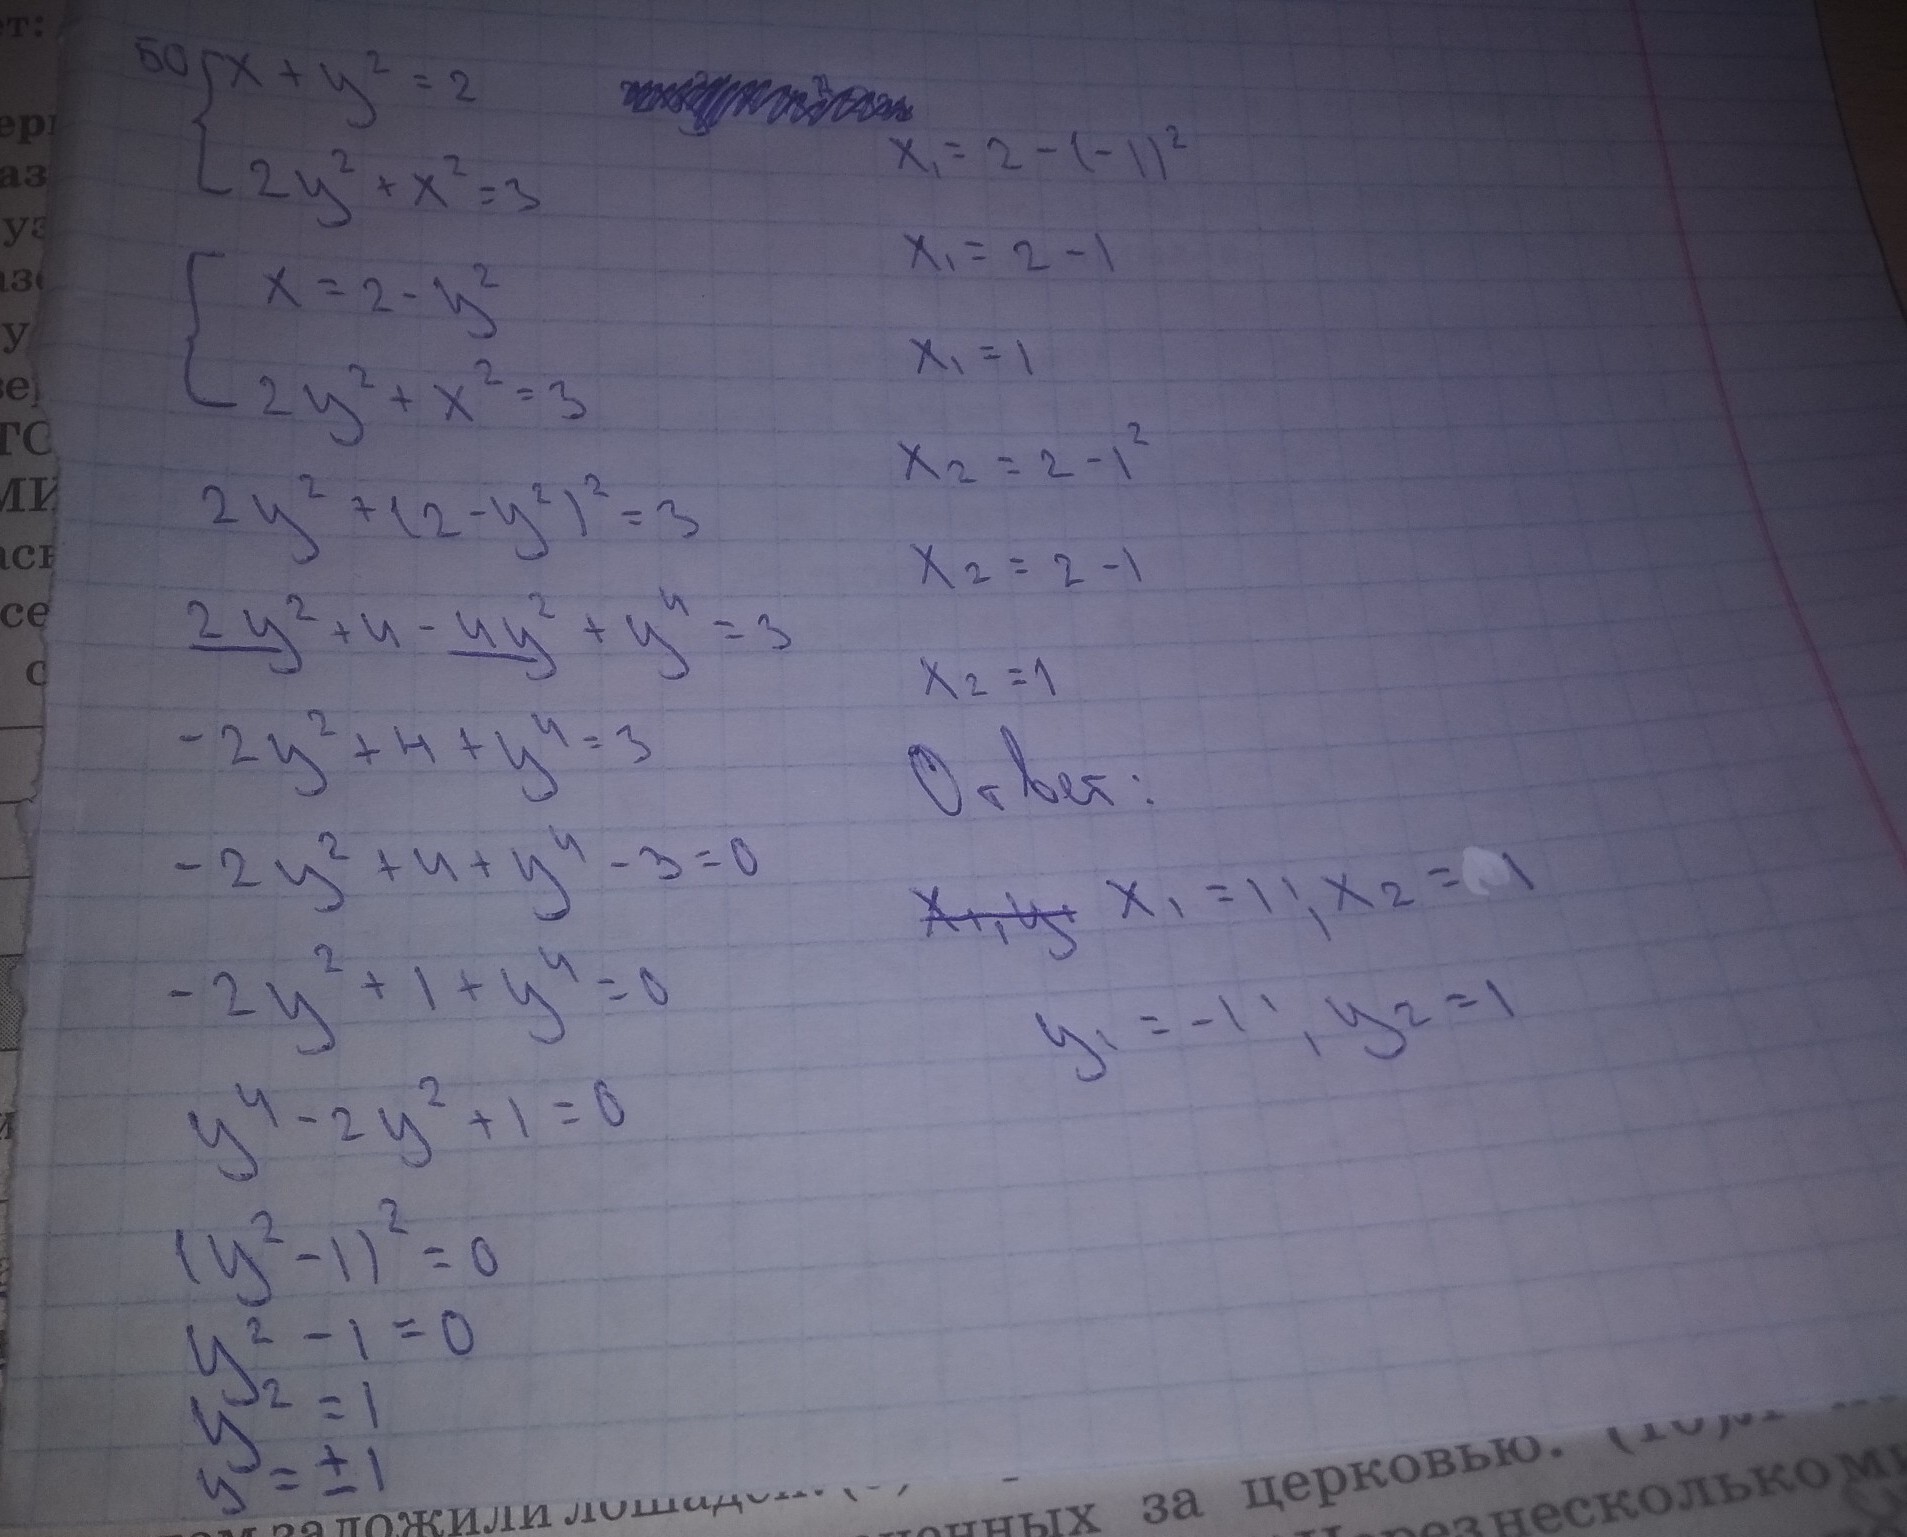 50 { x + y² = 2
2y² + x² = 3
{ x = 2 - y²
2y² + x² = 3
2y² + (2 - y²)² = 3
2y² + 4 - 4y² + y⁴ = 3
-2y² + 4 + y⁴ = 3
-2y² + 4 + y⁴ - 3 = 0
-2y² + 1 + y⁴ = 0
y⁴ - 2y² + 1 = 0
(y² - 1)² = 0
y² - 1 = 0
y² = 1
y = ±1
x₁ = 2 - (-1)²
x₁ = 2 - 1
x₁ = 1
x₂ = 2 - 1²
x₂ = 2 - 1
x₂ = 1
Ответ:
x₁ = 1; x₂ = 1
y₁ = -1; y₂ = 1
ет:
аз
уз
у
ТО
МИ
се
с
заложили
за церковью. (10)